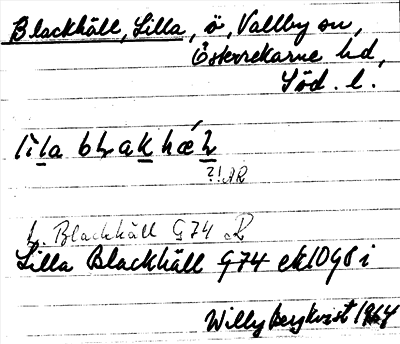 Blackhäll, Lilla, ö, Vallby sn,
Österrekarne hd,
Söd. l.
?! AR
L. Blackhäll G74 AR
Lilla Blackhäll 974 ek 10G8 i
Willy Bergkvist 1964